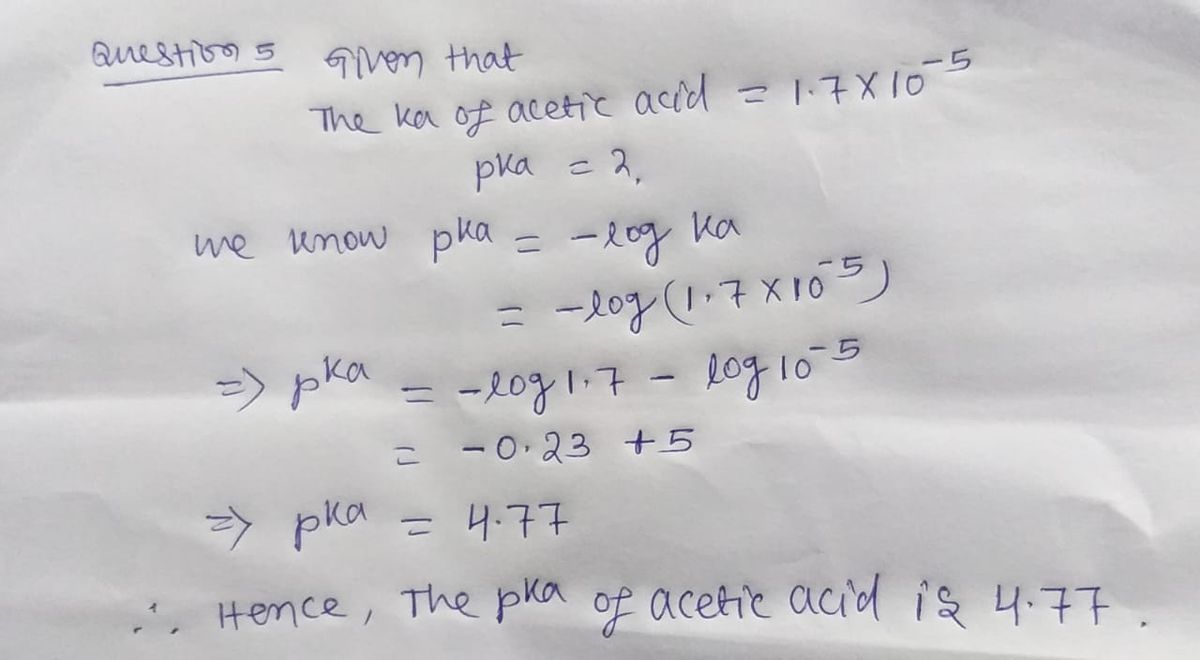 Question 5 Given that
The ka of acetic acid = 1.7 X 10⁻⁵
pka = 2,
we know pka = -log ka
= -log (1.7 X 10⁻⁵)
=> pka = -log 1.7 - log 10⁻⁵
= -0.23 + 5
=> pka = 4.77
∴ Hence, The pka of acetic acid is 4.77.